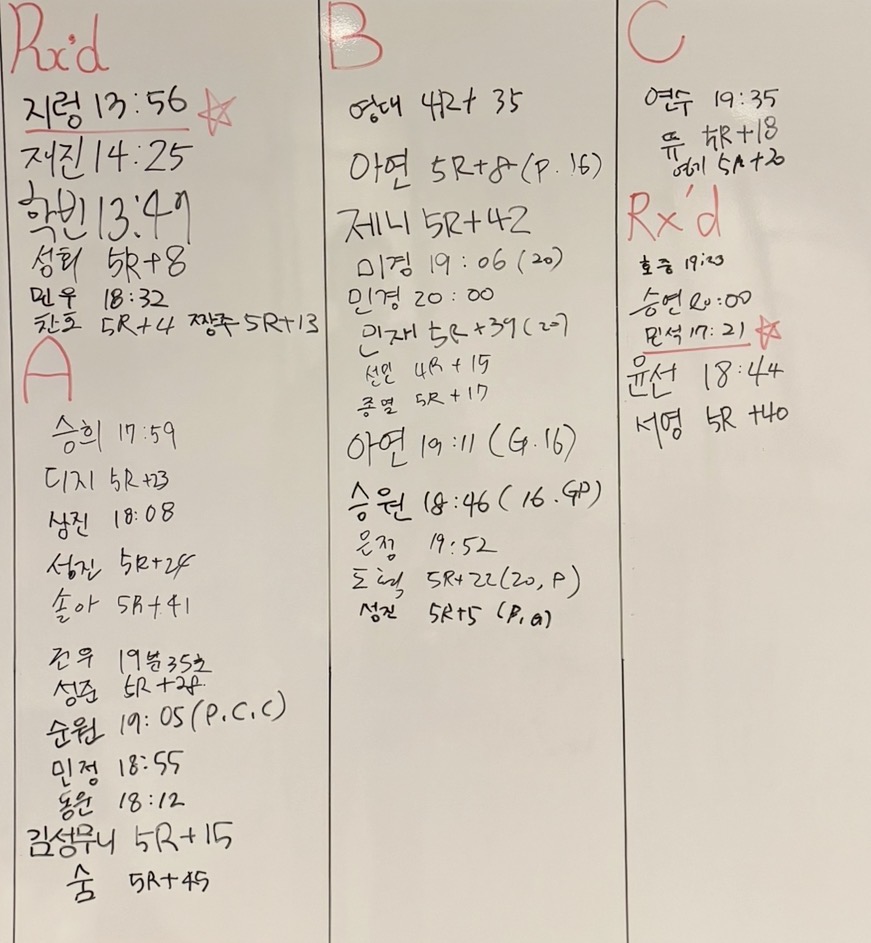 Rx'd
지렁 13:56
재진 14:25
학빈 13:47
성희 5R+8
민우 18:32
찬호 5R+4 짱주 5R+13
A
승희 17:59
디지 5R+23
상진 18:08
성진 5R+24
솔아 5R+41
건우 19분35초
성준 5R+28
순원 19:05(P.C.C)
민정 18:55
동운 18:12
김성무니 5R+15
숨 5R+45
B
영대 4R+35
아연 5R+8(P.16)
제니 5R+42
미경 19:06(20)
민경 20:00
민재 5R+39(20)
선민 4R+15
종열 5R+17
아연 19:11(G.16)
승원 18:46(16.GP)
은정 19:52
도혁 5R+22(20,P)
성진 5R+5 (P,G)
C
연수 19:35
쮸 5R+18
5R+20
Rx'd
호중 19:23
승연 20:00
민석 17:21
윤선 18:44
서영 5R+40